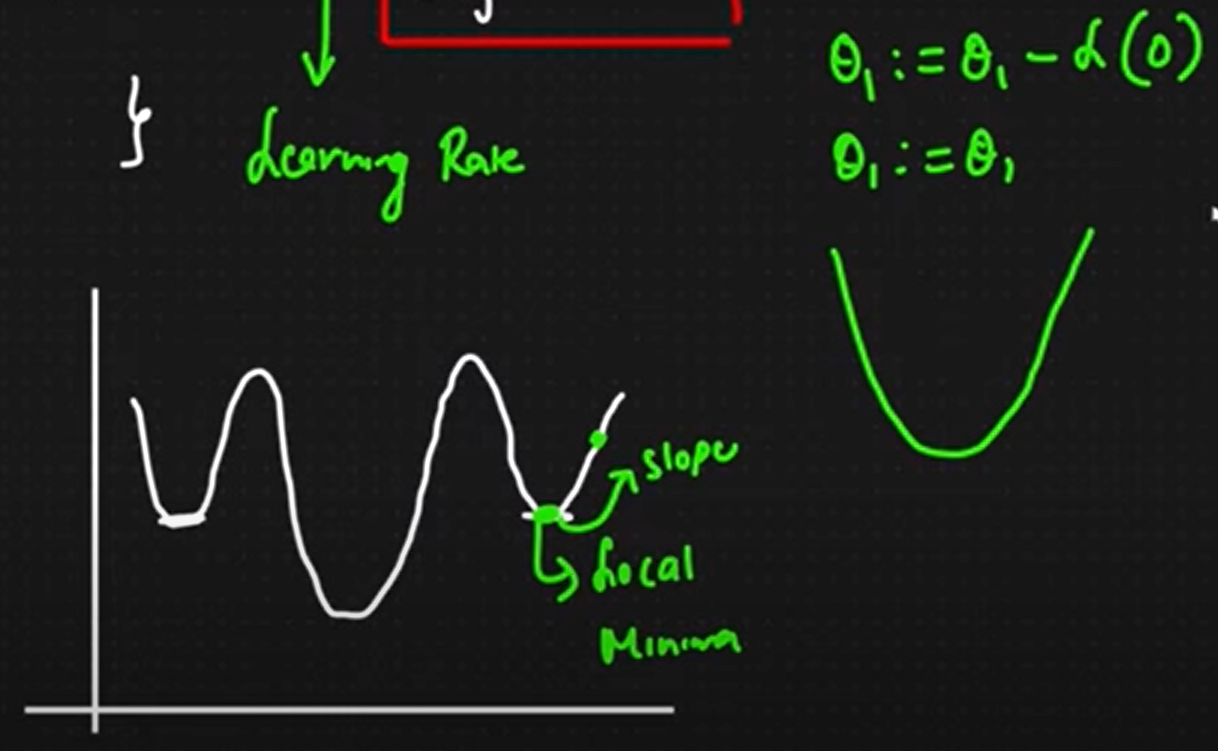 }
Learning Rate
θ₁ := θ₁ - α(0)
θ₁ := θ₁
slope
Local
Minima